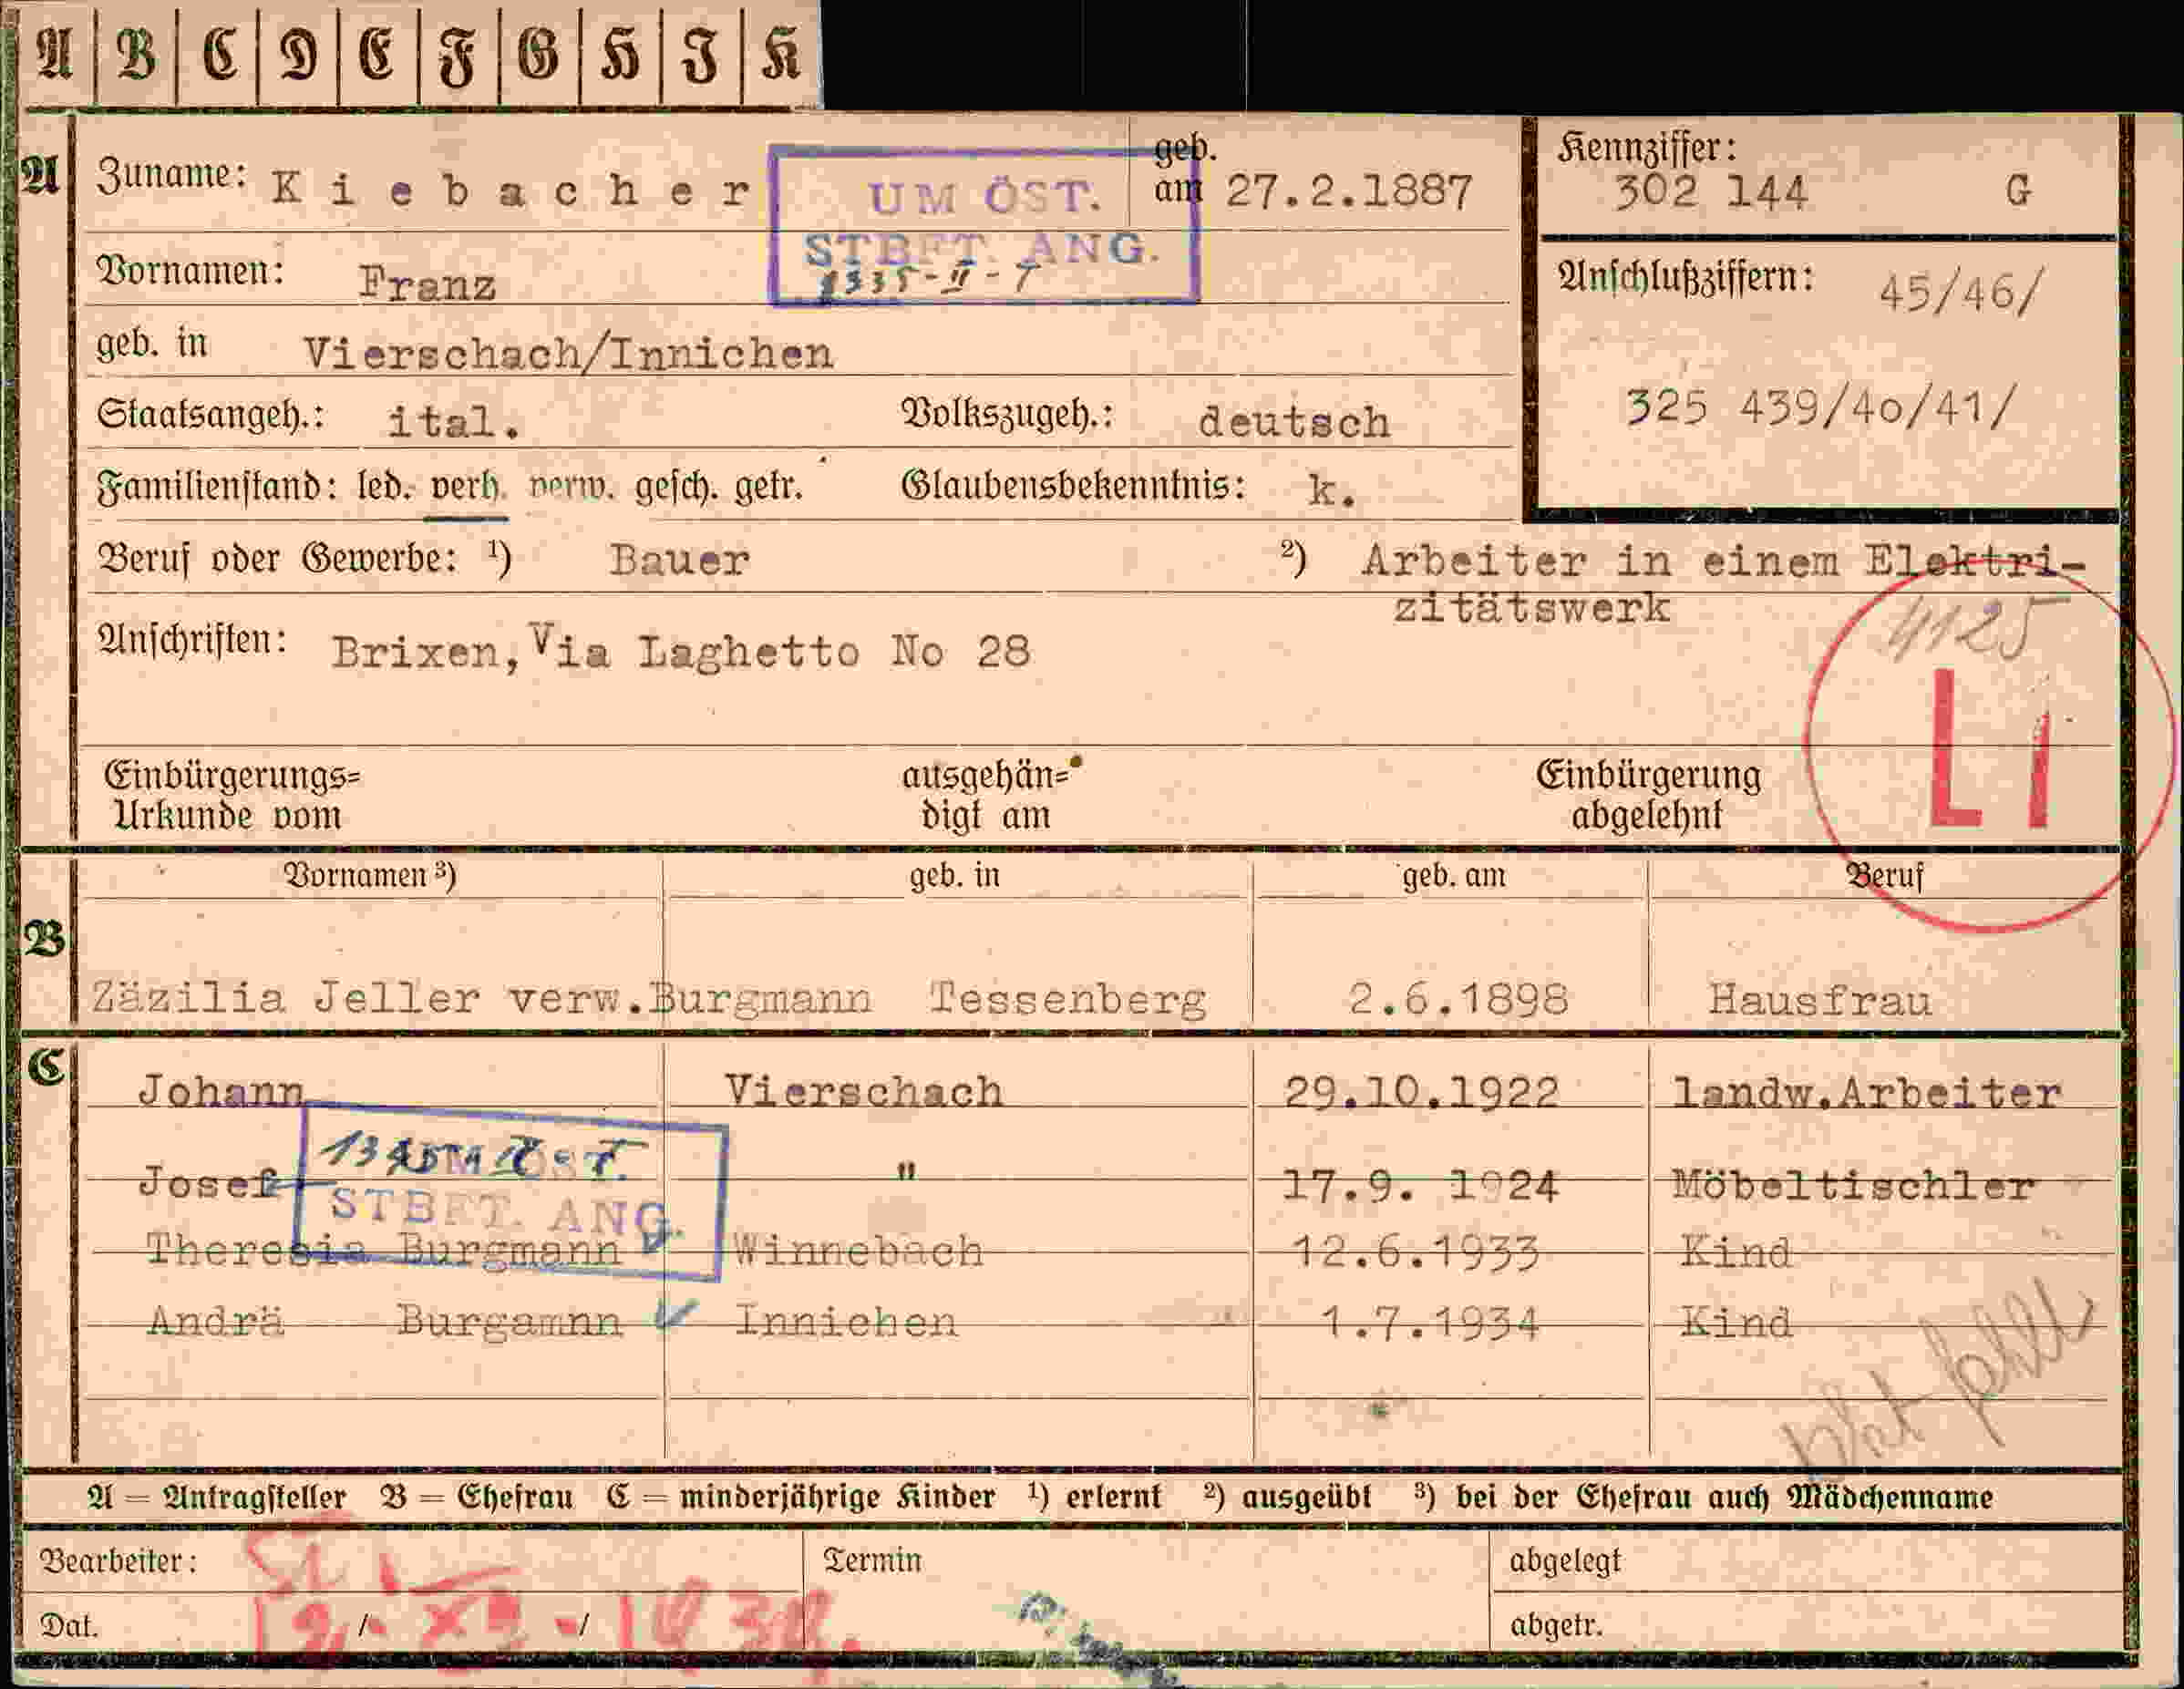 A B C D E F G H J K
A Zuname: Kiebacher geb. am 27.2.1887
UM ÖST.
STBFT. ANG.
1335-II-T
Kennziffer:
302 144 G
Vornamen: Franz
Anschlußziffern: 45/46/
325 439/40/41/
geb. in Vierschach/Innichen
Staatsangeh.: ital. Volkszugeh.: deutsch
Familienstand: led. verh. verw. gesch. getr. Glaubensbekenntnis: k.
Beruf oder Gewerbe: ¹) Bauer ²) Arbeiter in einem Elektri-
zitätswerk
4125
Anschriften: Brixen, Via Laghetto No 28
Li
Einbürgerungs=
Urkunde vom
ausgehän=
digt am
Einbürgerung
abgelehnt
Vornamen ³) geb. in geb. am Beruf
B
Zäzilia Jeller verw.Burgmann Tessenberg 2.6.1898 Hausfrau
C
Johann Vierschach 29.10.1922 landw.Arbeiter
Josef " 17.9. 1924 Möbeltischler
STBFT. ANG.
Theresia Burgmann Winnebach 12.6.1933 Kind
Andrä Burgamnn Innichen 1.7.1934 Kind
A = Antragsteller B = Ehefrau C = minderjährige Kinder ¹) erlernt ²) ausgeübt ³) bei der Ehefrau auch Mädchenname
Bearbeiter: Termin abgelegt
Dat. / / abgetr.